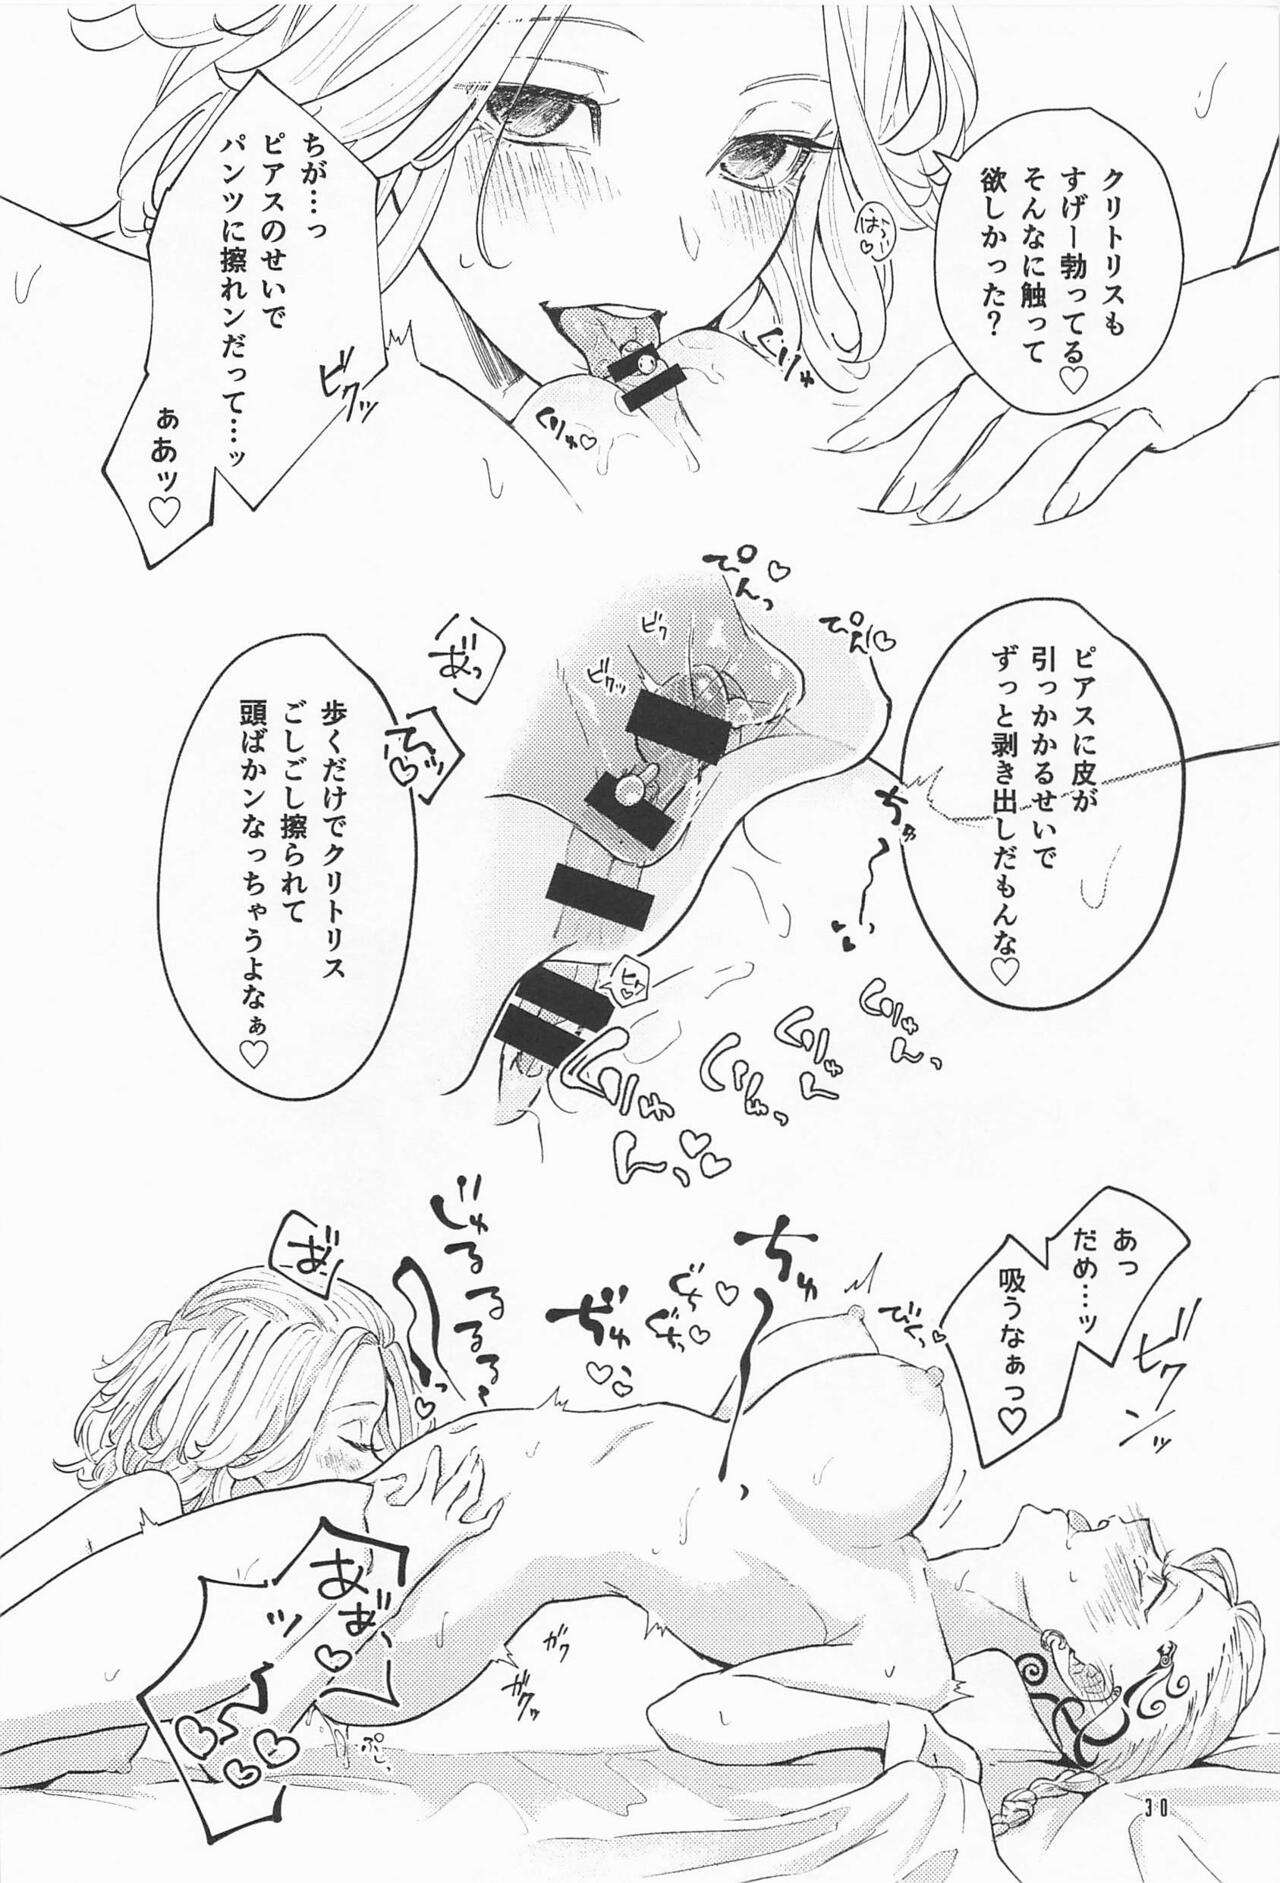 クリトリスも
すげー勃ってる♡
そんなに触って
欲しかった?
は〜い♡
ちが…っ
ピアスのせいで
パンツに擦れンだって…ッ
ぁあッ♡
くりゅ
くりゅ♡
ビクッ
ピアスに皮が
引っかかるせいで
ずっと剥き出しだもんな♡
ぴんっ♡
ぴんっ♡
ビク
ビクッ
あ゛っ
て゛ッ♡
歩くだけでクリトリス
ごしごし擦られて
頭ばかンなっちゃうよなぁ♡
ちゅ〜っ♡♡
ビク♡
くりゅん、
くりゅん
くりゅん
くりゅん、♡♡♡
あっ
だめ…ッ
吸うなぁっ♡
ビクンッ
びくっ♡
ちゅ〜っ
ぐちぐちっ♡♡
ぢゅ〜っ♡♡
じゅるるるるっ♡
お゛
あ゛あ゛、ッ〜♡♡♡♡♡
ガクガクッ
ぷし
30